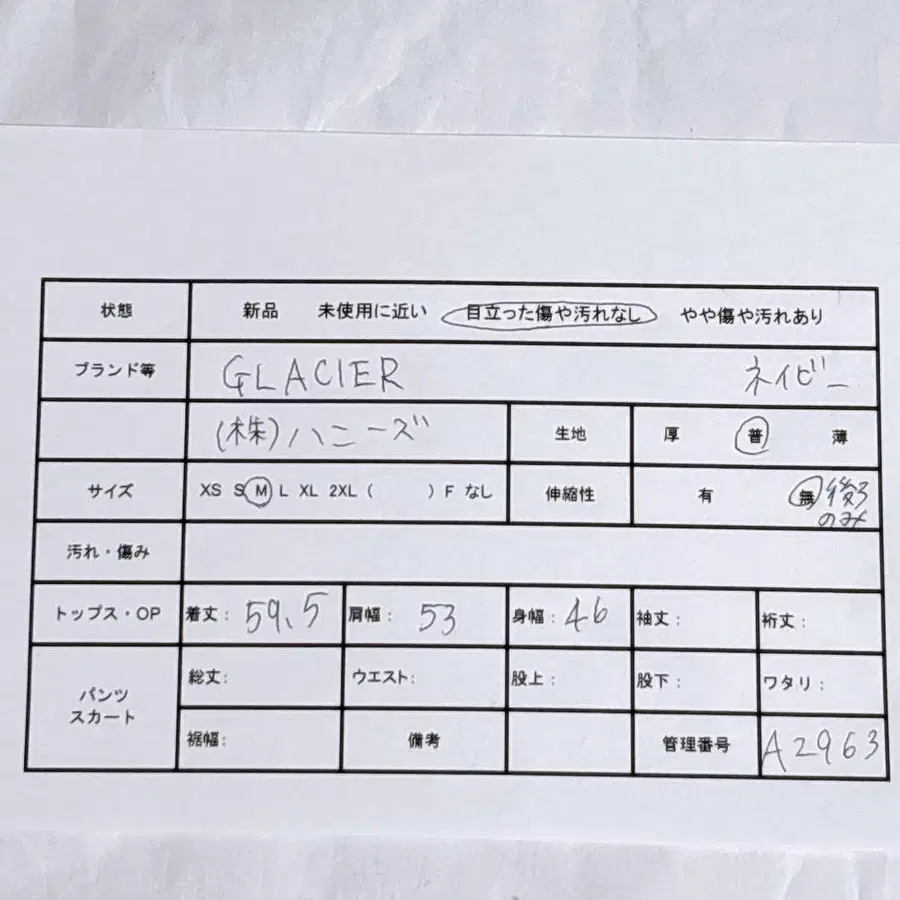 状態 新品 未使用に近い 目立った傷や汚れなし やや傷や汚れあり
ブランド等 GLACIER ネイビー
(株)ハニーズ 生地 厚 普 薄
サイズ XS S M L XL 2XL ( ) F なし 伸縮性 有 無 後ろ
のみ
汚れ・傷み
トップス・OP 着丈: 59.5 肩幅: 53 身幅: 46 袖丈: 裄丈:
パンツ
スカート
総丈: ウエスト: 股上: 股下: ワタリ:
裾幅: 備考 管理番号 A2963